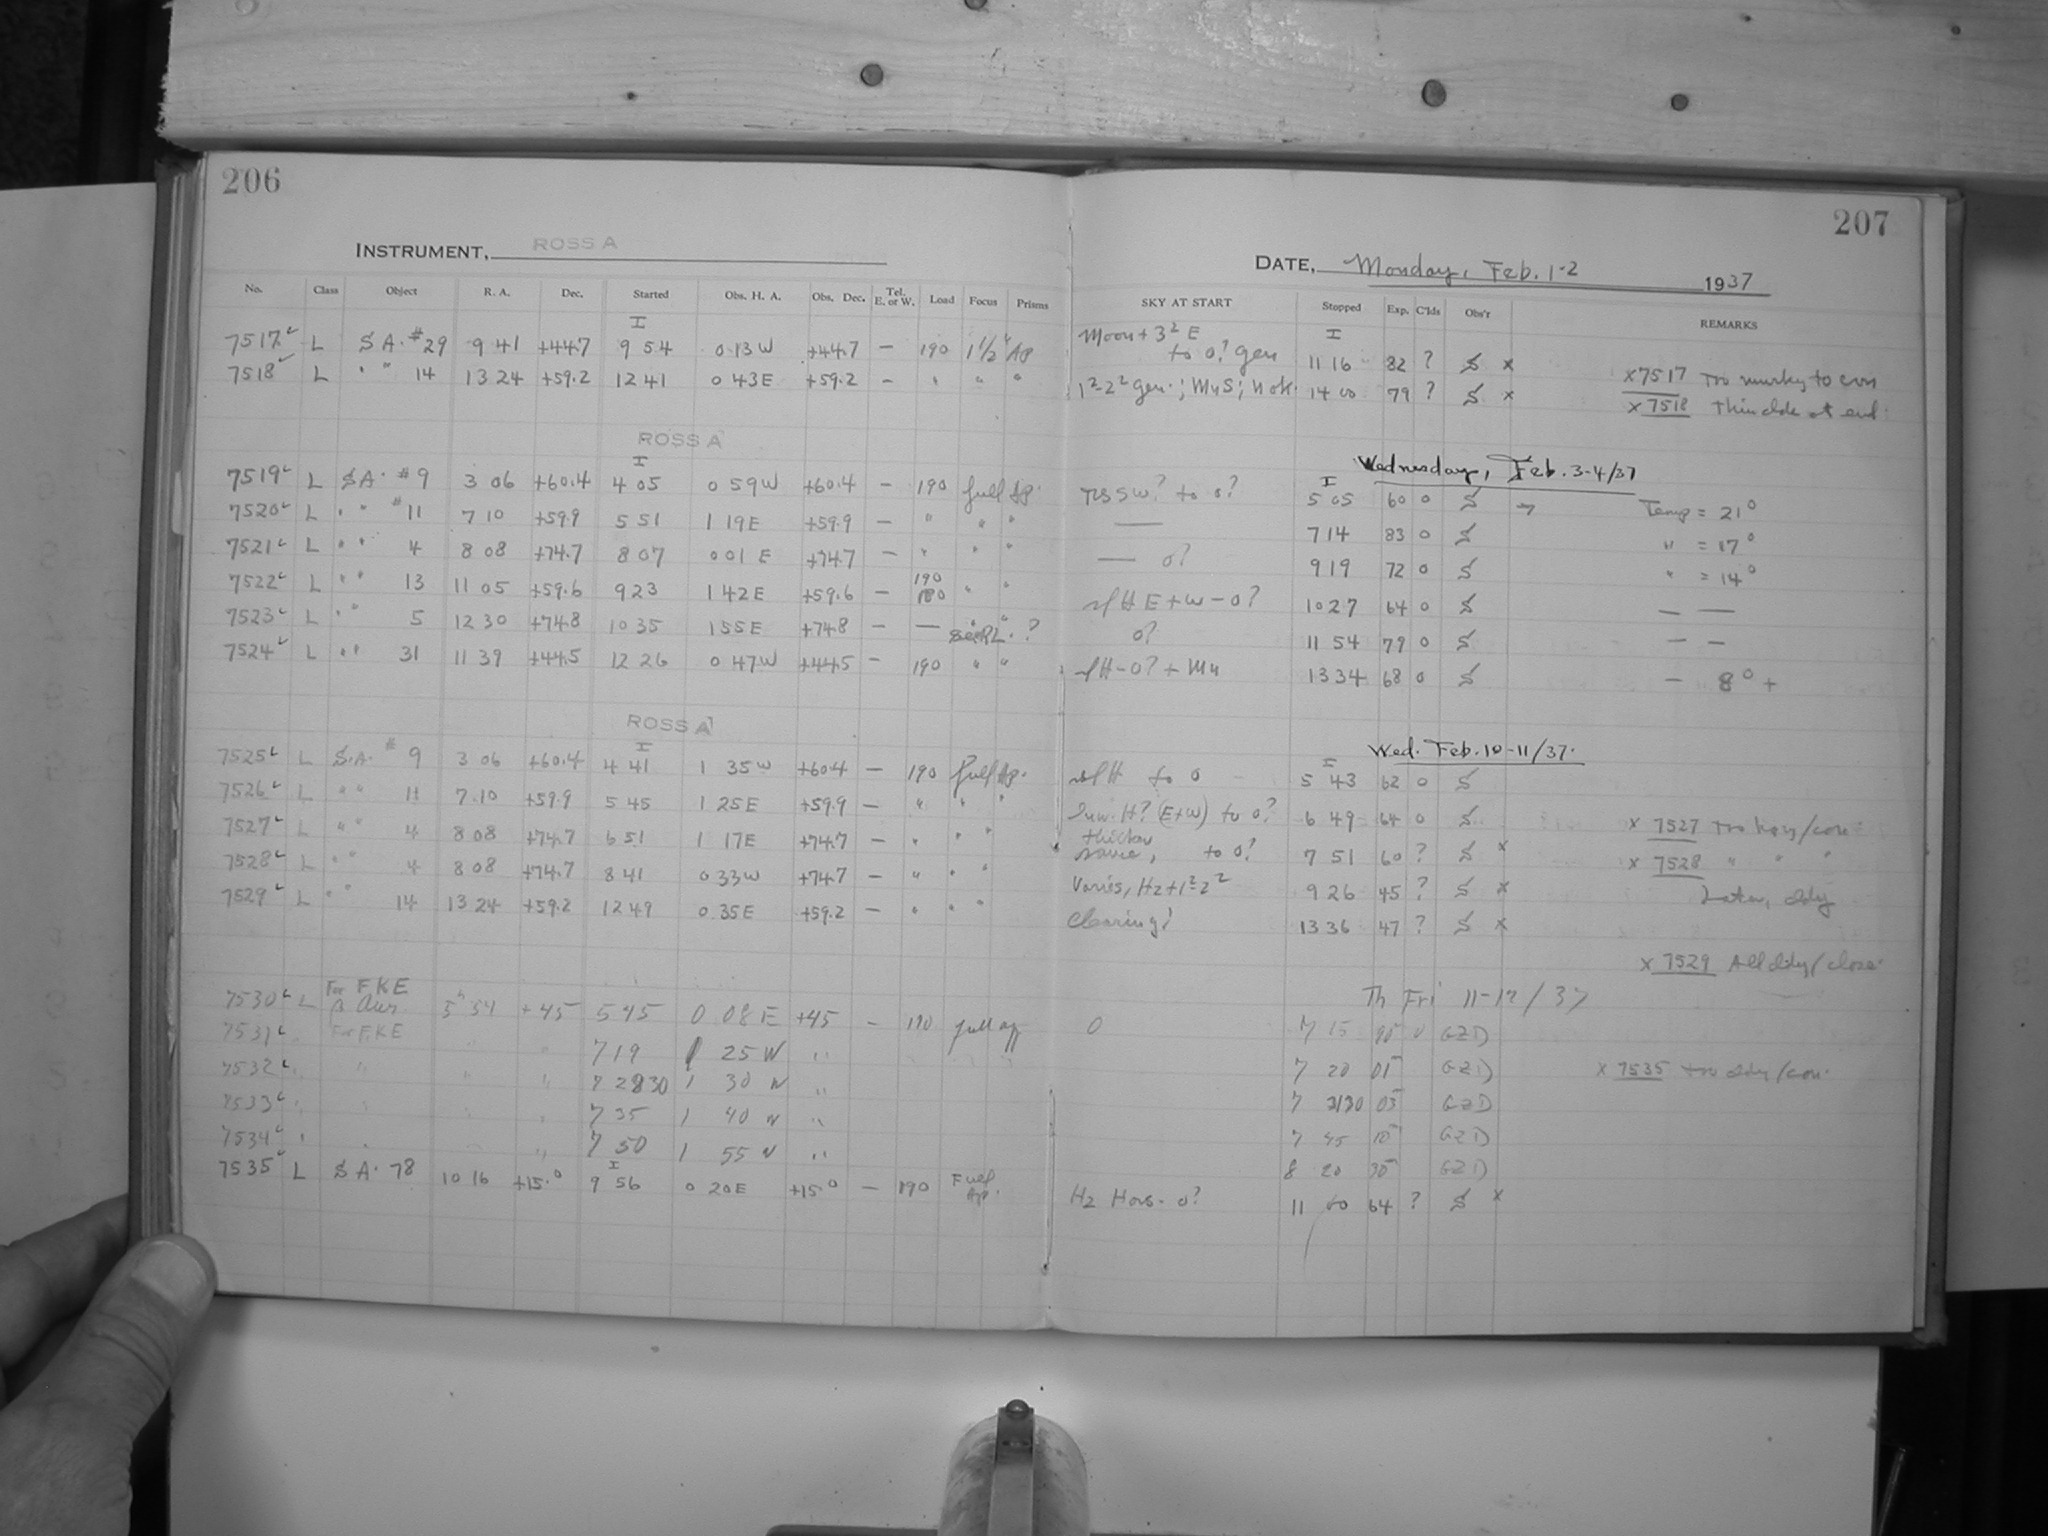 206
INSTRUMENT, ROSS A
No. Class Object R. A. Dec. Started Obs. H. A. Obs. Dec. Tel. E. or W. Load Focus Prisms
I
7517 L S A. #29 9 41 +44.7 9 54 0 13 W +44.7 — 190 1 1/2" Ap
7518 L " " 14 13 24 +59.2 12 41 0 43 E +59.2 - " " "
ROSS A
I
7519 L S A. #9 3 06 +60.4 4 05 0 59 W +60.4 — 190 full Ap.
7520 L " " #11 7 10 +59.9 5 51 1 19 E +59.9 — " " "
7521 L " " 4 8 08 +74.7 8 07 0 01 E +74.7 — " " "
7522 L " " 13 11 05 +59.6 9 23 1 42 E +59.6 — 190 " "
7523 L " " 5 12 30 +74.8 10 35 1 55 E +74.8 — — ?
7524 L " " 31 11 39 +44.5 12 26 0 47 W +44.5 — 190 " "
ROSS A
I
7525 L S.A. #9 3 06 +60.4 4 41 1 35 W +60.4 — 190 full Ap.
7526 L " " 11 7 10 +59.9 5 45 1 25 E +59.9 — " " "
7527 L " " 4 8 08 +74.7 6 51 1 17 E +74.7 — " " "
7528 L " " 4 8 08 +74.7 8 41 0 33 W +74.7 — " " "
7529 L " " 14 13 24 +59.2 12 49 0 35 E +59.2 — " " "
For F.K.E
7530 L β Aur 5h 54 +45 5 45 0 08 E +45 — 190 full ap
7531 " For F.K.E " " 7 19 1 25 W "
7532 " " " " 7 28 30 1 30 W "
7533 " " " 7 35 1 40 W "
7534 " " " " 7 50 1 55 W "
I
7535 L S A. 78 10 16 +15.0 9 56 0 20 E +15.0 — 190 Full Ap.
207
DATE, Monday, Feb. 1-2 1937
SKY AT START Stopped Exp. C'lds Obs'r REMARKS
I
Moon + 3² E
to 0? gen 11 16 82 ? S x x 7517 Too murky to con
1²-2² gen.; 14 00 79 ? S x x 7518 Thin clds at end.
Wednesday, Feb. 3-4/37
I
to 0? 5 05 60 0 S Temp = 21°
— 7 14 83 0 S " = 17°
— 0? 9 19 72 0 S " = 14°
sl H E + W - 0? 10 27 64 0 S — —
0? 11 54 79 0 S — —
sl H - 0? + 13 34 68 0 S — 8° +
Wed. Feb. 10-11/37.
I
sl H to 0 5 43 62 0 S
H? (E+W) to 0? 6 49 64 0 S x 7527 too hazy/con.
thicker
same, to 0? 7 51 60 ? S x x 7528 " " "
Varies, Hz + 1²-2² 9 26 45 ? S x Later, cldy
Clearing? 13 36 47 ? S x
x 7529 All cldy/close.
Th Fri 11-12/37
0 7 15 90 0 GZD
7 20 01 GZD x 7535 too cldy/con.
7 31 30 03 GZD
7 45 10 GZD
8 20 30 GZD
Hz Hors. 0? 11 00 64 ? S x